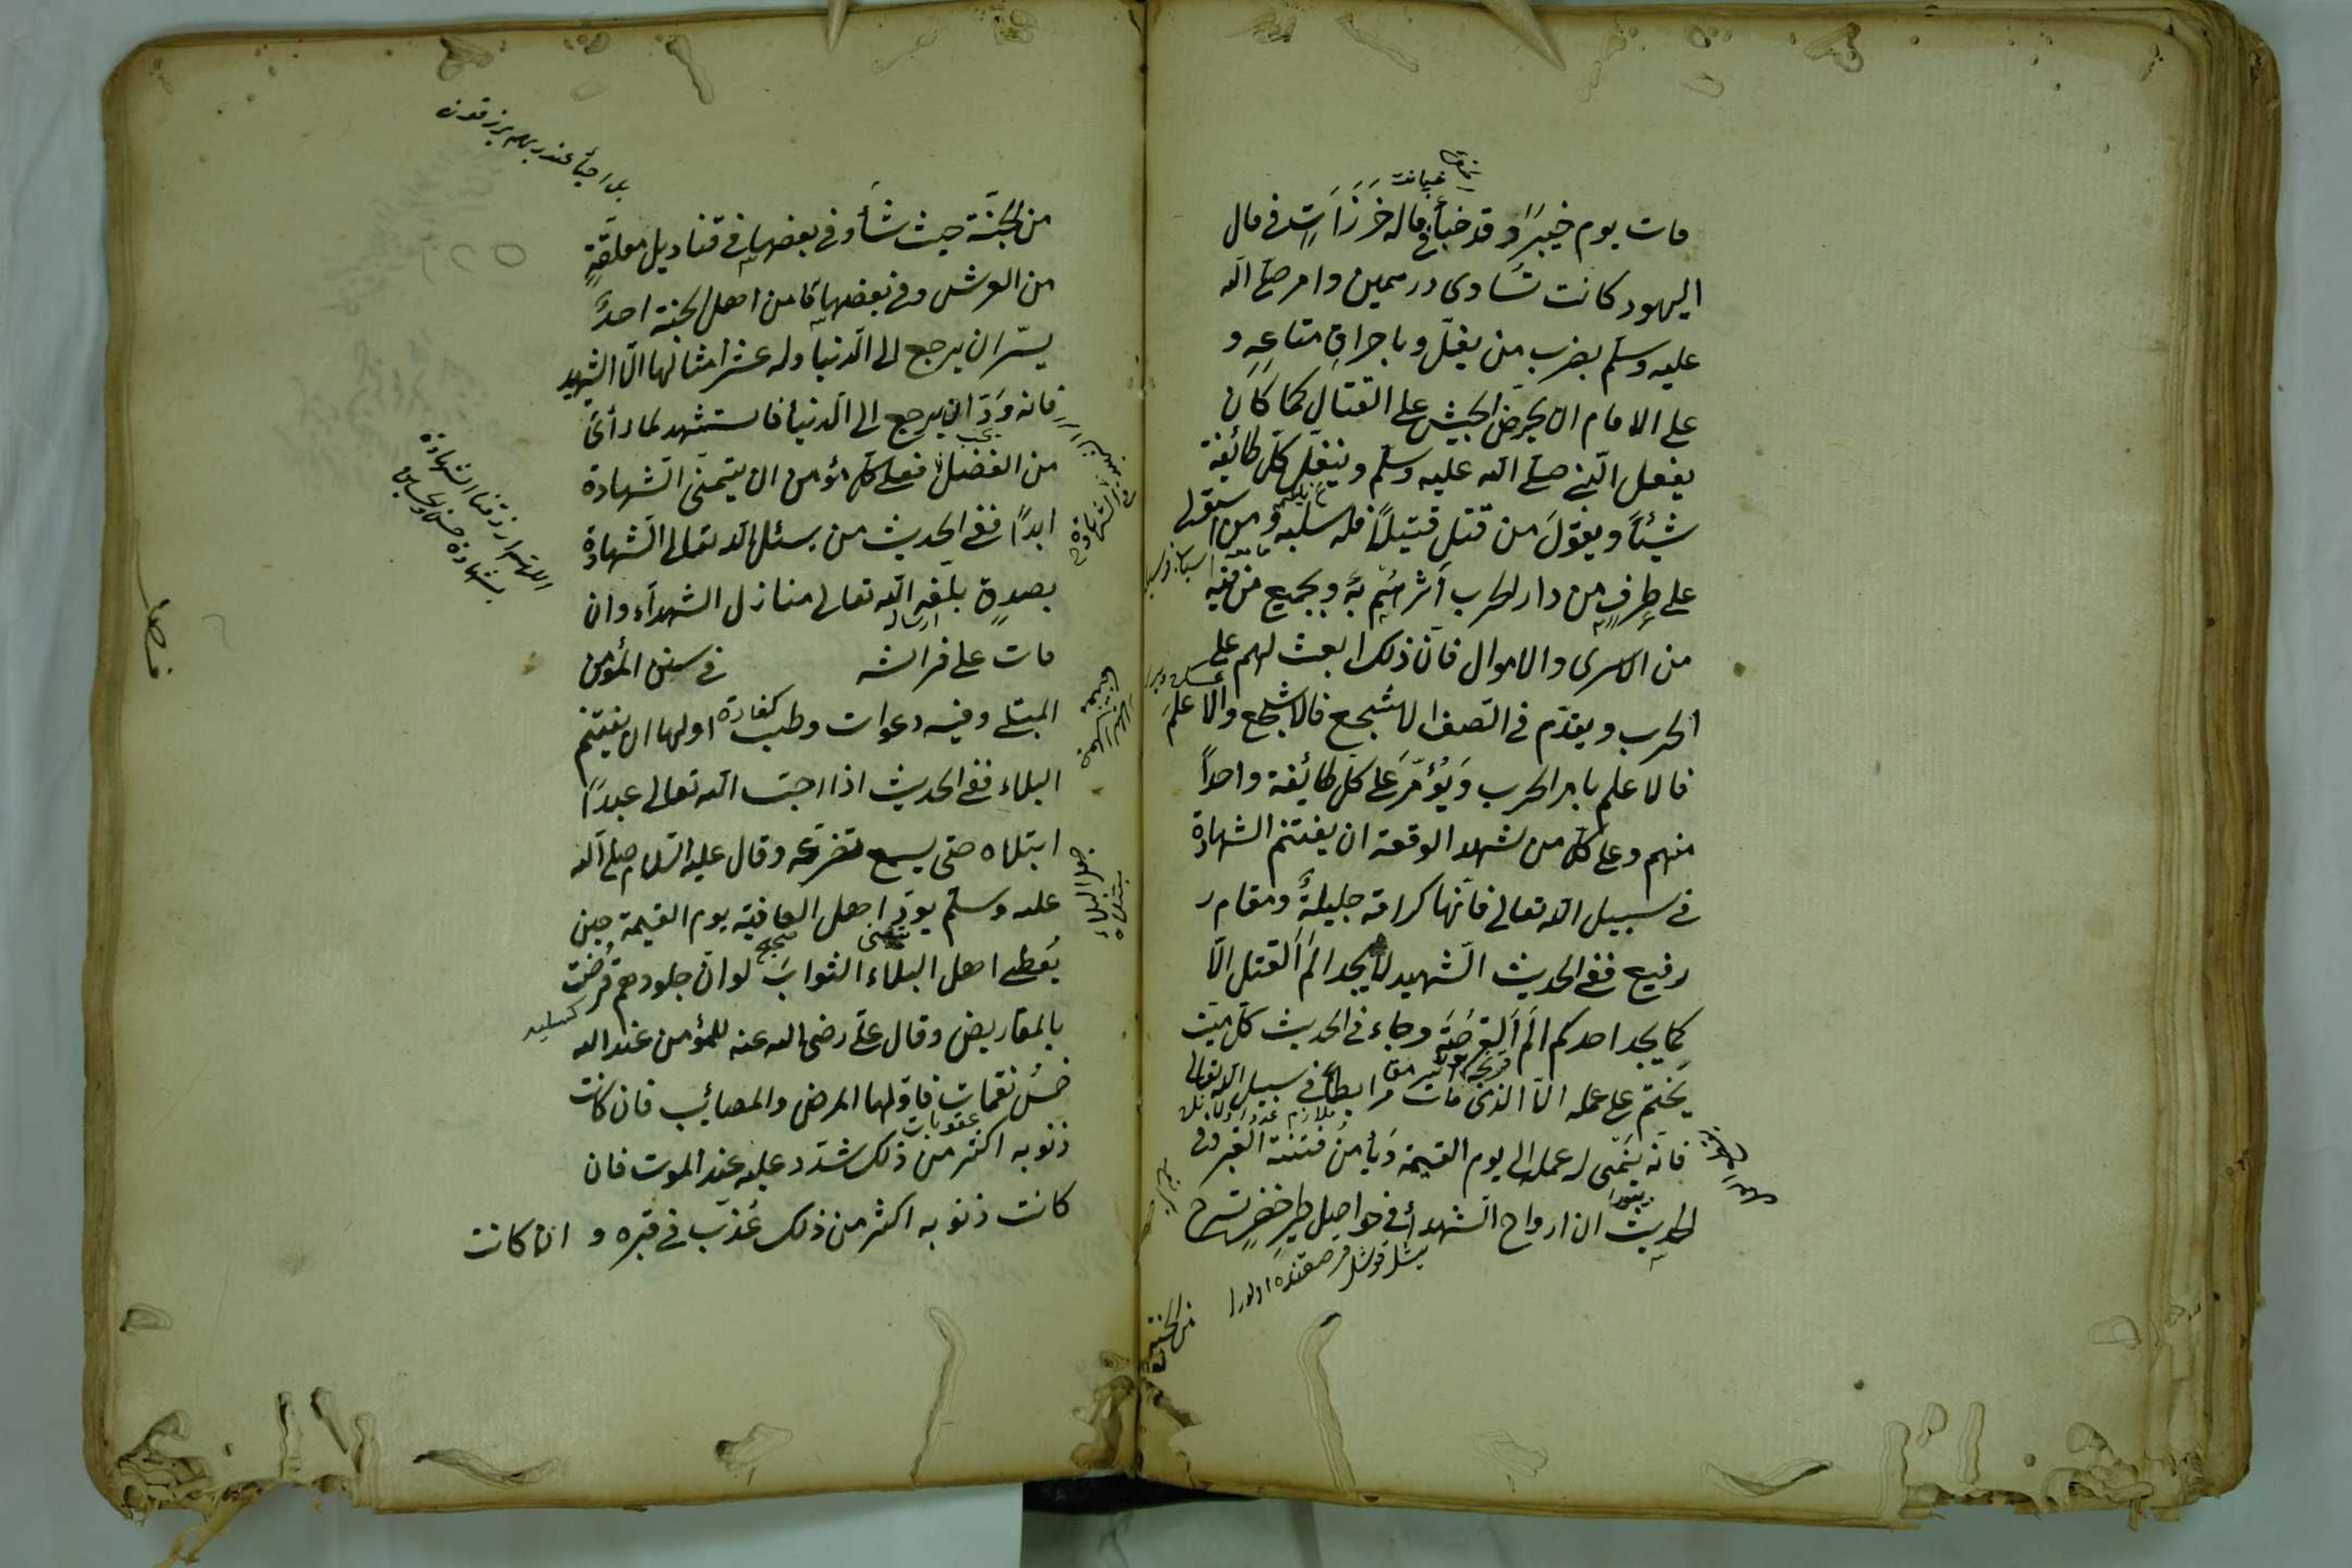 خيانت
مات يوم خيبر وقد خبأ في ماله خَرَزَاتٍ في مال
اليهود كانت تساوى درهمين وامر صلى الله
عليه وسلم بضرب من يغل وباحراق متاعه و
على الامام ان يحرض الجيش على القتال كما كان
يفعل النبي صلى الله عليه وسلم وينفل كل طائفة
شيئاً ويقول من قتل قتيلاً فله سلبه ومن استولى
على طرف من دار الحرب وبجميع من فيه
من الاسرى والاموال فان ذلك ابعث لهم على
الحرب ويقدم في الصف الاشجع فالاشجع والاعلم
فالاعلم بامر الحرب ويؤمر على كل طائفة واحداً
منهم وعلى كل من شهد الوقعة ان يغتنم الشهادة
في سبيل الله تعالى فانها كرامة جليلة ومقام
رفيع ففى الحديث الشهيد لا يجد الم القتل الا
كما يجد احدكم الم القرصة وجاء في الحديث كل ميت
يختم على عمله الا الذى مات مرابطا في سبيل الله تعالى
فانه ينمى له عمله الى يوم القيمة ويأمن فتنة القبر وفى
الحديث ان ارواح الشهدأ في حواصل طير خضر تسرح
من الجنة
بل احيأ عند ربهم يرزقون
من الجنّة حيث شأ وفى بعضها في قناديل معلقةٍ
من العرش وفى بعضها ما من اهل الجنة احدٌ
يسرّ ان يرجع الى الدنيا وله عشر امثالها الّا الشهيد
فانه ودّ ان يرجع الى الدنيا فاستشهد لما رأى
يجب
من الفضل فعلى كل مؤمن ان يتمنى الشهادة
ابداً ففى الحديث من يسئل الله تعالى الشهادة
بصدق بلّغه الله تعالى منازل الشهدآء وان
مات على فراشه في سنن المؤمن
المبتلى وفيه دعوات وطب كفارة اولها ان يغتنم
البلاء ففى الحديث اذا احبّ الله تعالى عبدًا
ابتلاه حتى يسمع تضرعه وقال عليه السلام صلى الله
عليه وسلم يودّ اهل العافية يوم القيمة حين
يُعطى اهل البلاء الثواب لو ان جلودهم قرضت
بالمقاريض وقال على رضى الله عنه للمؤمن عند الله
خمس نقمات فاولها المرض والمصائب فان كانت
عقوبات
ذنوبه اكثر من ذلك شدد عليه عند الموت فان
كانت ذنوبه اكثر من ذلك عُذّب في قبره و ان كانت
اللهم ارزقنا الشهادة
فصل